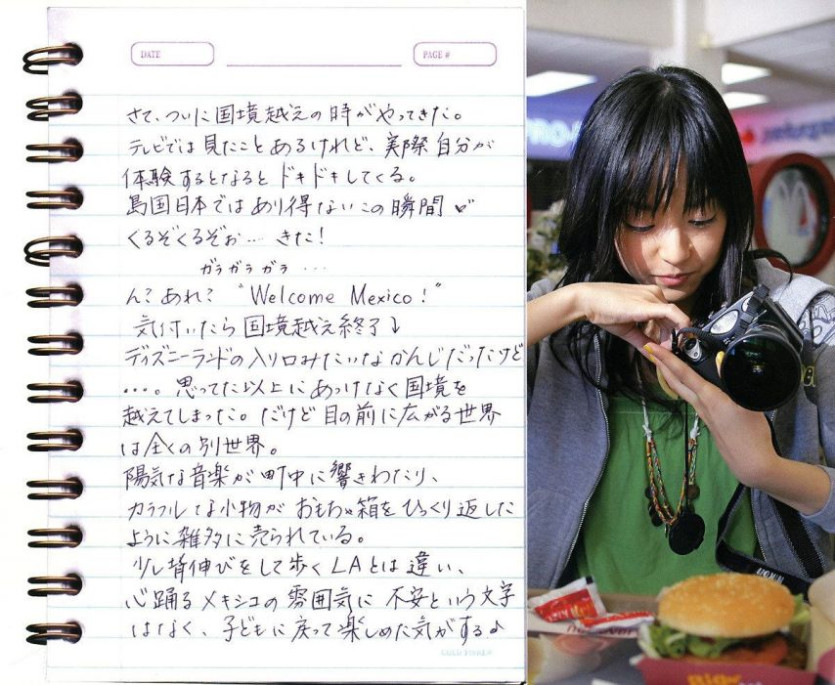 DATE
PAGE #
さて、ついに国境越えの時がやってきた。
テレビでは見たことあるけれど、実際自分が
体験するとなるとドキドキしてくる。
島国日本ではあり得ないこの瞬間♡
くるぞくるぞぉ… きた!
ガラガラガラ …
ん? あれ? "Welcome Mexico!"
気付いたら国境越え終了↓
ディズニーランドの入り口みたいなかんじだったけど
…。思ってた以上にあっけなく国境を
越えてしまった。だけど目の前に広がる世界
は全くの別世界。
陽気な音楽が町中に響きわたり、
カラフルな小物がおもちゃ箱をひっくり返した
ように雑多に売られている。
少し背伸びをして歩くLAとは違い、
心踊るメキシコの雰囲気に不安という文字
はなく、子どもに戻って楽しめた気がする♪